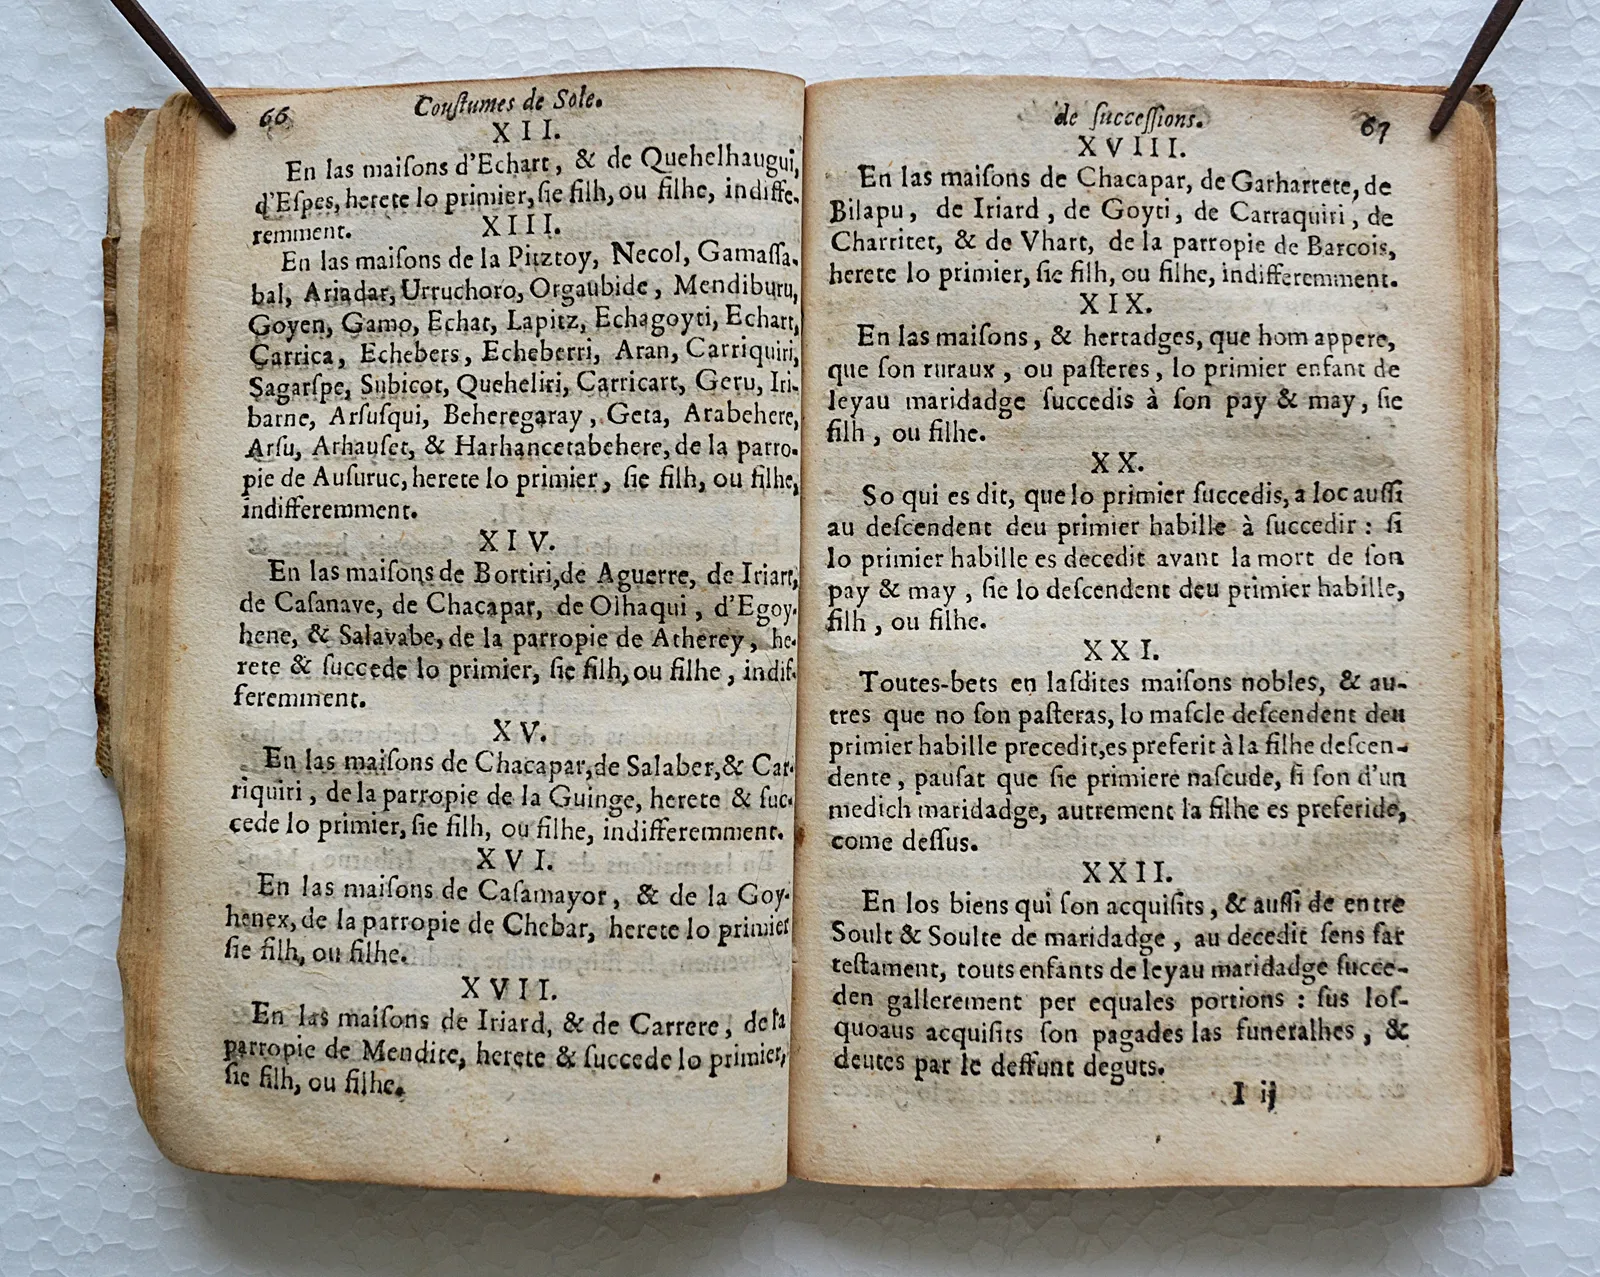 66
Couſtumes de Sole.
XII.
En las maiſons d'Echart, & de Quehelhaugui,
d'Eſpes, herete lo primier, ſie filh, ou filhe, indiffe-
remment.
XIII.
En las maiſons de la Pitztoy, Necol, Gamaſſa-
bal, Ariadar, Urruchoro, Orgaubide, Mendiburu,
Goyen, Gamo, Echat, Lapitz, Echagoyti, Echart,
Carrica, Echebers, Echeberri, Aran, Carriquiri,
Sagarſpe, Subicot, Queheliri, Carricart, Geru, Iri-
barne, Arſuſqui, Beheregaray, Geta, Arabehere,
Arſu, Arhauſet, & Harhancetabehere, de la parro-
pie de Auſuruc, herete lo primier, ſie filh, ou filhe,
indifferemment.
XIV.
En las maiſons de Bortiri, de Aguerre, de Iriart,
de Caſanave, de Chacapar, de Olhaqui, d'Egoy-
hene, & Salavabe, de la parropie de Atherey, he-
rete & ſuccede lo primier, ſie filh, ou filhe, indif-
feremment.
XV.
En las maiſons de Chacapar, de Salaber, & Car-
riquiri, de la parropie de la Guinge, herete & ſuc-
cede lo primier, ſie filh, ou filhe, indifferemment.
XVI.
En las maiſons de Caſamayor, & de la Goy-
henex, de la parropie de Chebar, herete lo primier
ſie filh, ou filhe.
XVII.
En las maiſons de Iriard, & de Carrere, de la
parropie de Mendite, herete & ſuccede lo primier,
ſie filh, ou filhe.
de ſucceſſions.
67
XVIII.
En las maiſons de Chacapar, de Garharrete, de
Bilapu, de Iriard, de Goyti, de Carraquiri, de
Charritet, & de Vhart, de la parropie de Barcois,
herete lo primier, ſie filh, ou filhe, indifferemment.
XIX.
En las maiſons, & hertadges, que hom appere,
que ſon ruraux, ou paſteres, lo primier enfant de
leyau maridadge ſuccedis à ſon pay & may, ſie
filh, ou filhe.
XX.
So qui es dit, que lo primier ſuccedis, a loc auſſi
au deſcendent deu primier habille à ſuccedir : ſi
lo primier habille es decedit avant la mort de ſon
pay & may, ſie lo deſcendent deu primier habille,
filh, ou filhe.
XXI.
Toutes-bets en laſdites maiſons nobles, & au-
tres que no ſon paſteras, lo maſcle deſcendent deu
primier habille precedit, es preferit à la filhe deſcen-
dente, pauſat que ſie primiere naſcude, ſi ſon d'un
medich maridadge, autrement la filhe es preferide,
come deſſus.
XXII.
En los biens qui ſon acquiſits, & auſſi de entre
Soult & Soulte de maridadge, au decedit ſens far
teſtament, touts enfants de leyau maridadge ſucce-
den gallerement per equales portions : ſus loſ-
quoaus acquiſits ſon pagades las funeralhes, &
deutes par le deffunt deguts.
I ij